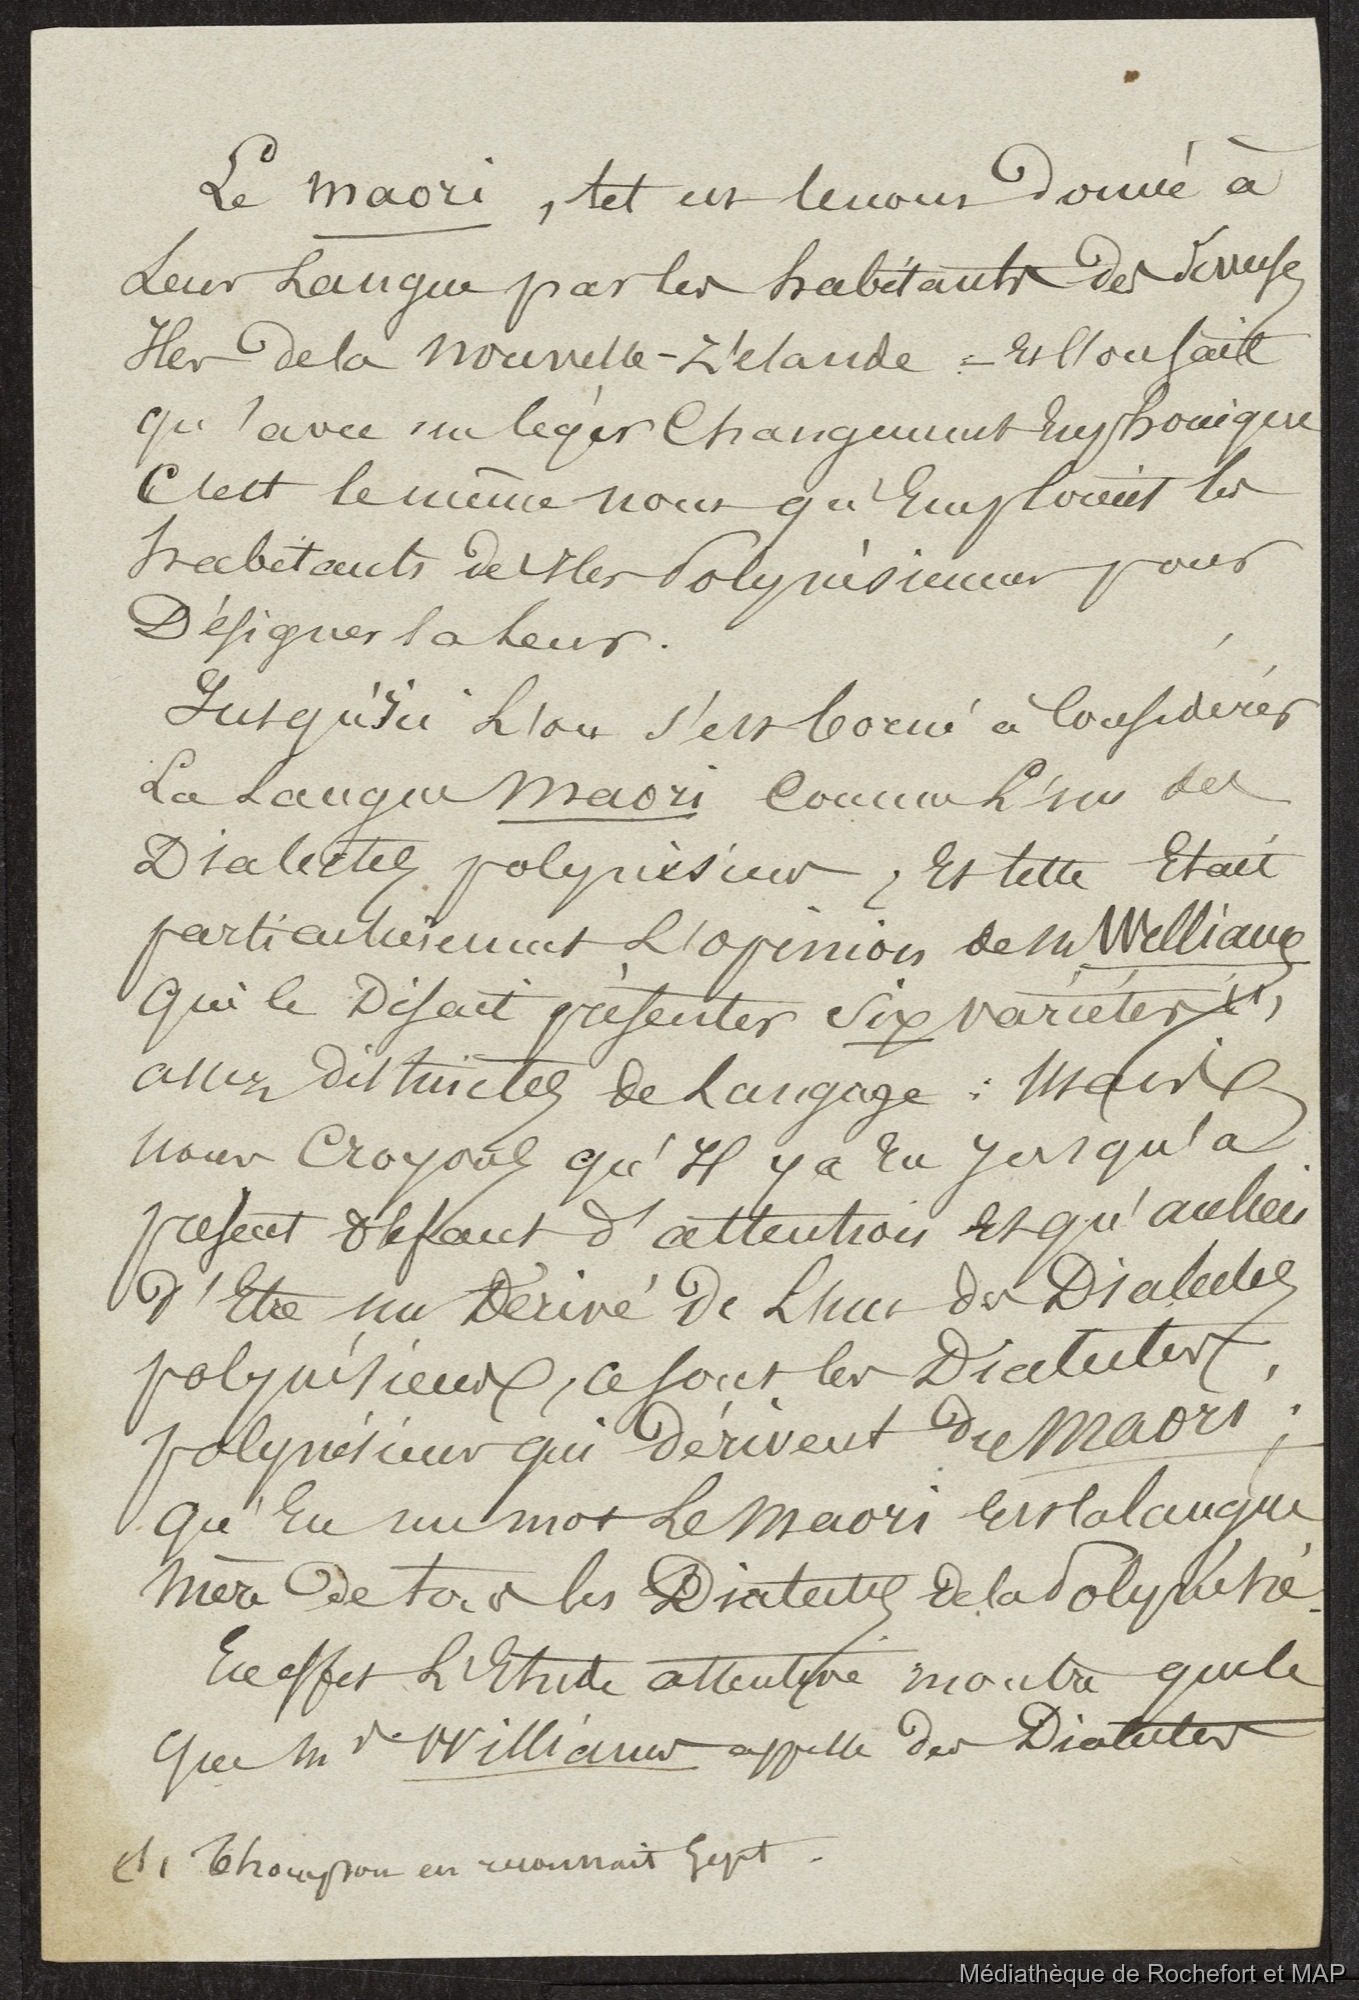 Le maori, tel est le nom donné à
leur langue par les habitants des deux
Iles de la Nouvelle-Zélande = Et l'on sait
qu'avec un léger changement Euphonique
C'est le même nom qu'Emploient les
habitants des Iles Polynésiennes pour
Désigner la leur.
Jusqu'ici L'on s'est borné à Considérer
La Langue Maori Comme L'un des
Dialectes polynésiens, Et telle Etait
particulièrement L'opinion de M Williams
qui le Disait présenter six variétés (1),
assez distinctes de Langage : Mais
nous Croyons qu'Il y a Eu Jusqu'à
présent défaut d'attention Et qu'au lieu
d'Etre un Dérivé de L'un des Dialectes
polynésiens, ce sont les Dialectes
polynésiens qui dérivent du Maori ;
qu'En un mot Le Maori Est la langue
Mère de tous les Dialectes de la Polynésie.
En effet L'Etude attentive montre que le
que Mr Williams appelle des Dialectes
(1) Thompson en reconnait Sept.
Médiathèque de Rochefort et MAP